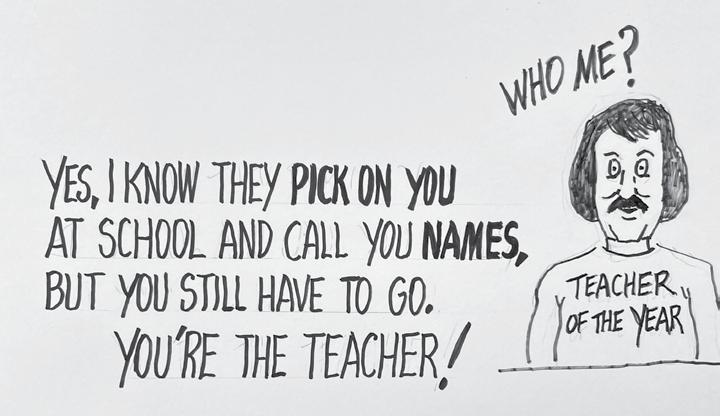 WHO ME?
YES, I KNOW THEY PICK ON YOU
AT SCHOOL AND CALL YOU NAMES,
BUT YOU STILL HAVE TO GO.
YOU'RE THE TEACHER!
TEACHER
OF THE YEAR